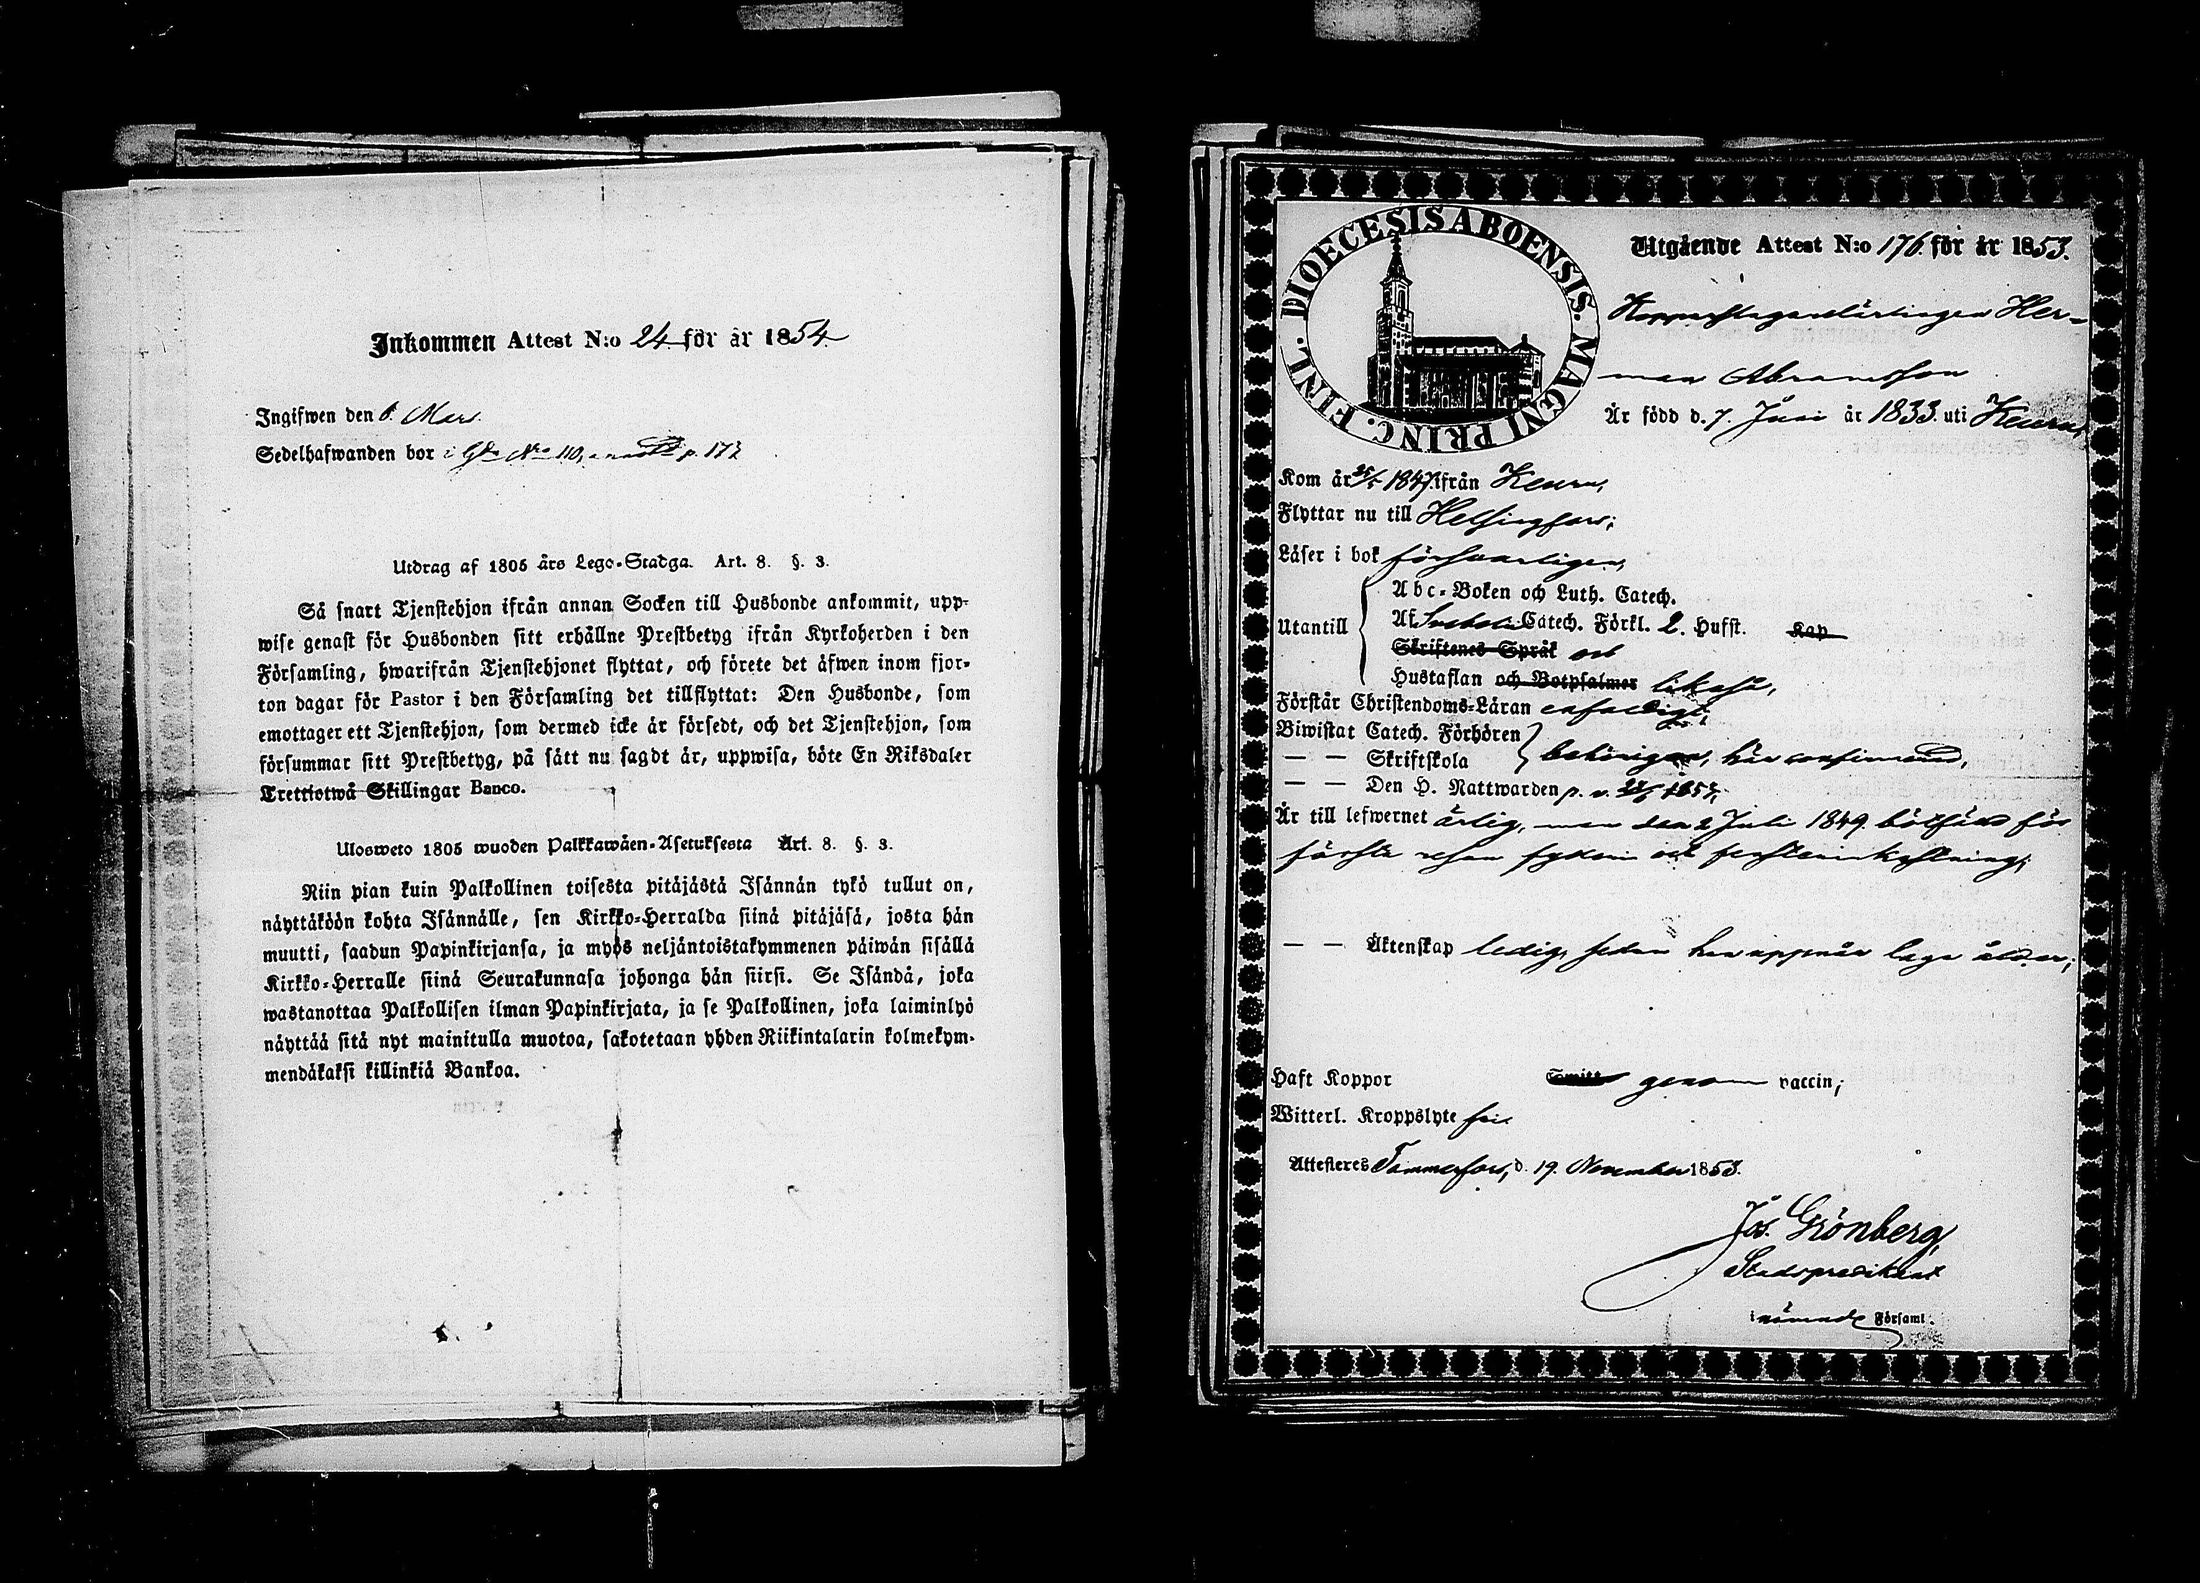 Inkommen Attest N:o 24 för år 1854
Ingifwen den 6. Mars.
Sedelhafwanden bor i Gdn Nro 110, p. 173
Utdrag af 1805 års Lego-Stadga. Art. 8. §. 3.
Så snart Tjenstehjon ifrån annan Socken till Husbonde ankommit, upp-
wise genast för Husbonden sitt erhållne Prestbetyg ifrån Kyrkoherden i den
Församling, hwarifrån Tjenstehjonet flyttat, och förete det äfwen inom fjor-
ton dagar för Pastor i den Församling det tillflyttat: Den Husbonde, som
emottager ett Tjenstehjon, som dermed icke är försedt, och det Tjenstehjon, som
försummar sitt Prestbetyg, på sätt nu sagdt är, uppwisa, böte En Riksdaler
Trettiotwå Skillingar Banco.
Ulosweto 1805 wuoden Palkkawäen-Asetuksesta Art. 8. §. 3.
Niin pian kuin Palkollinen toisesta pitäjästä Isännän tykö tullut on,
näyttäköön kohta Isännälle, sen Kirkko-Herralda siinä pitäjäsä, josta hän
muutti, saadun Papinkirjansa, ja myös neljäntoistakymmenen päiwän sisällä
Kirkko-Herralle siinä Seurakunnasa johonga hän siirsi. Se Isändä, joka
wastanottaa Palkollisen ilman Papinkirjata, ja se Palkollinen, joka laiminlyö
näyttää sitä nyt mainitulla muotoa, sakotetaan yhden Riikintalarin kolmekym-
mendäkaksi killinkiä Bankoa.
DIOECESIS ABOENSIS. MAGNI PRINC. FINL.
Utgående Attest N:o 176 för år 1853.
Kopparslagarelärlingen Her-
man Abramsson
Är född d. 7. Juni år 1833. uti Keuru,
Kom år 25/5 1847. ifrån Keuru,
Flyttar nu till Helsingfors;
Läser i bok försvarligen,
Utantill
Abc-Boken och Luth. Catech.
Af Svebelii Catech. Förkl. 2. Hufst. Kap
Skriftenes Språk och
Hustaflan och Botpsalmer likaså,
Förstår Christendoms-Läran enfaldigt;
Biwistat Catech. Förhören
— — Skriftskola behörigen, här confirmerad,
— — Den H. Nattwarden p. v. 1853;
Är till lefwernet ärlig, men den 2 Juli 1849. bötfäld för
första resan fylleri och fensterinkastning;
— — Äktenskap ledig, sedan han uppnår laga ålder;
Haft Koppor Smitt genom vaccin;
Witterl. Kroppslyte fri.
Attesteres Tammerfors, d. 19. November 1853.
Jos. Grönberg,
Stadspredikant
i nämnde Församl.